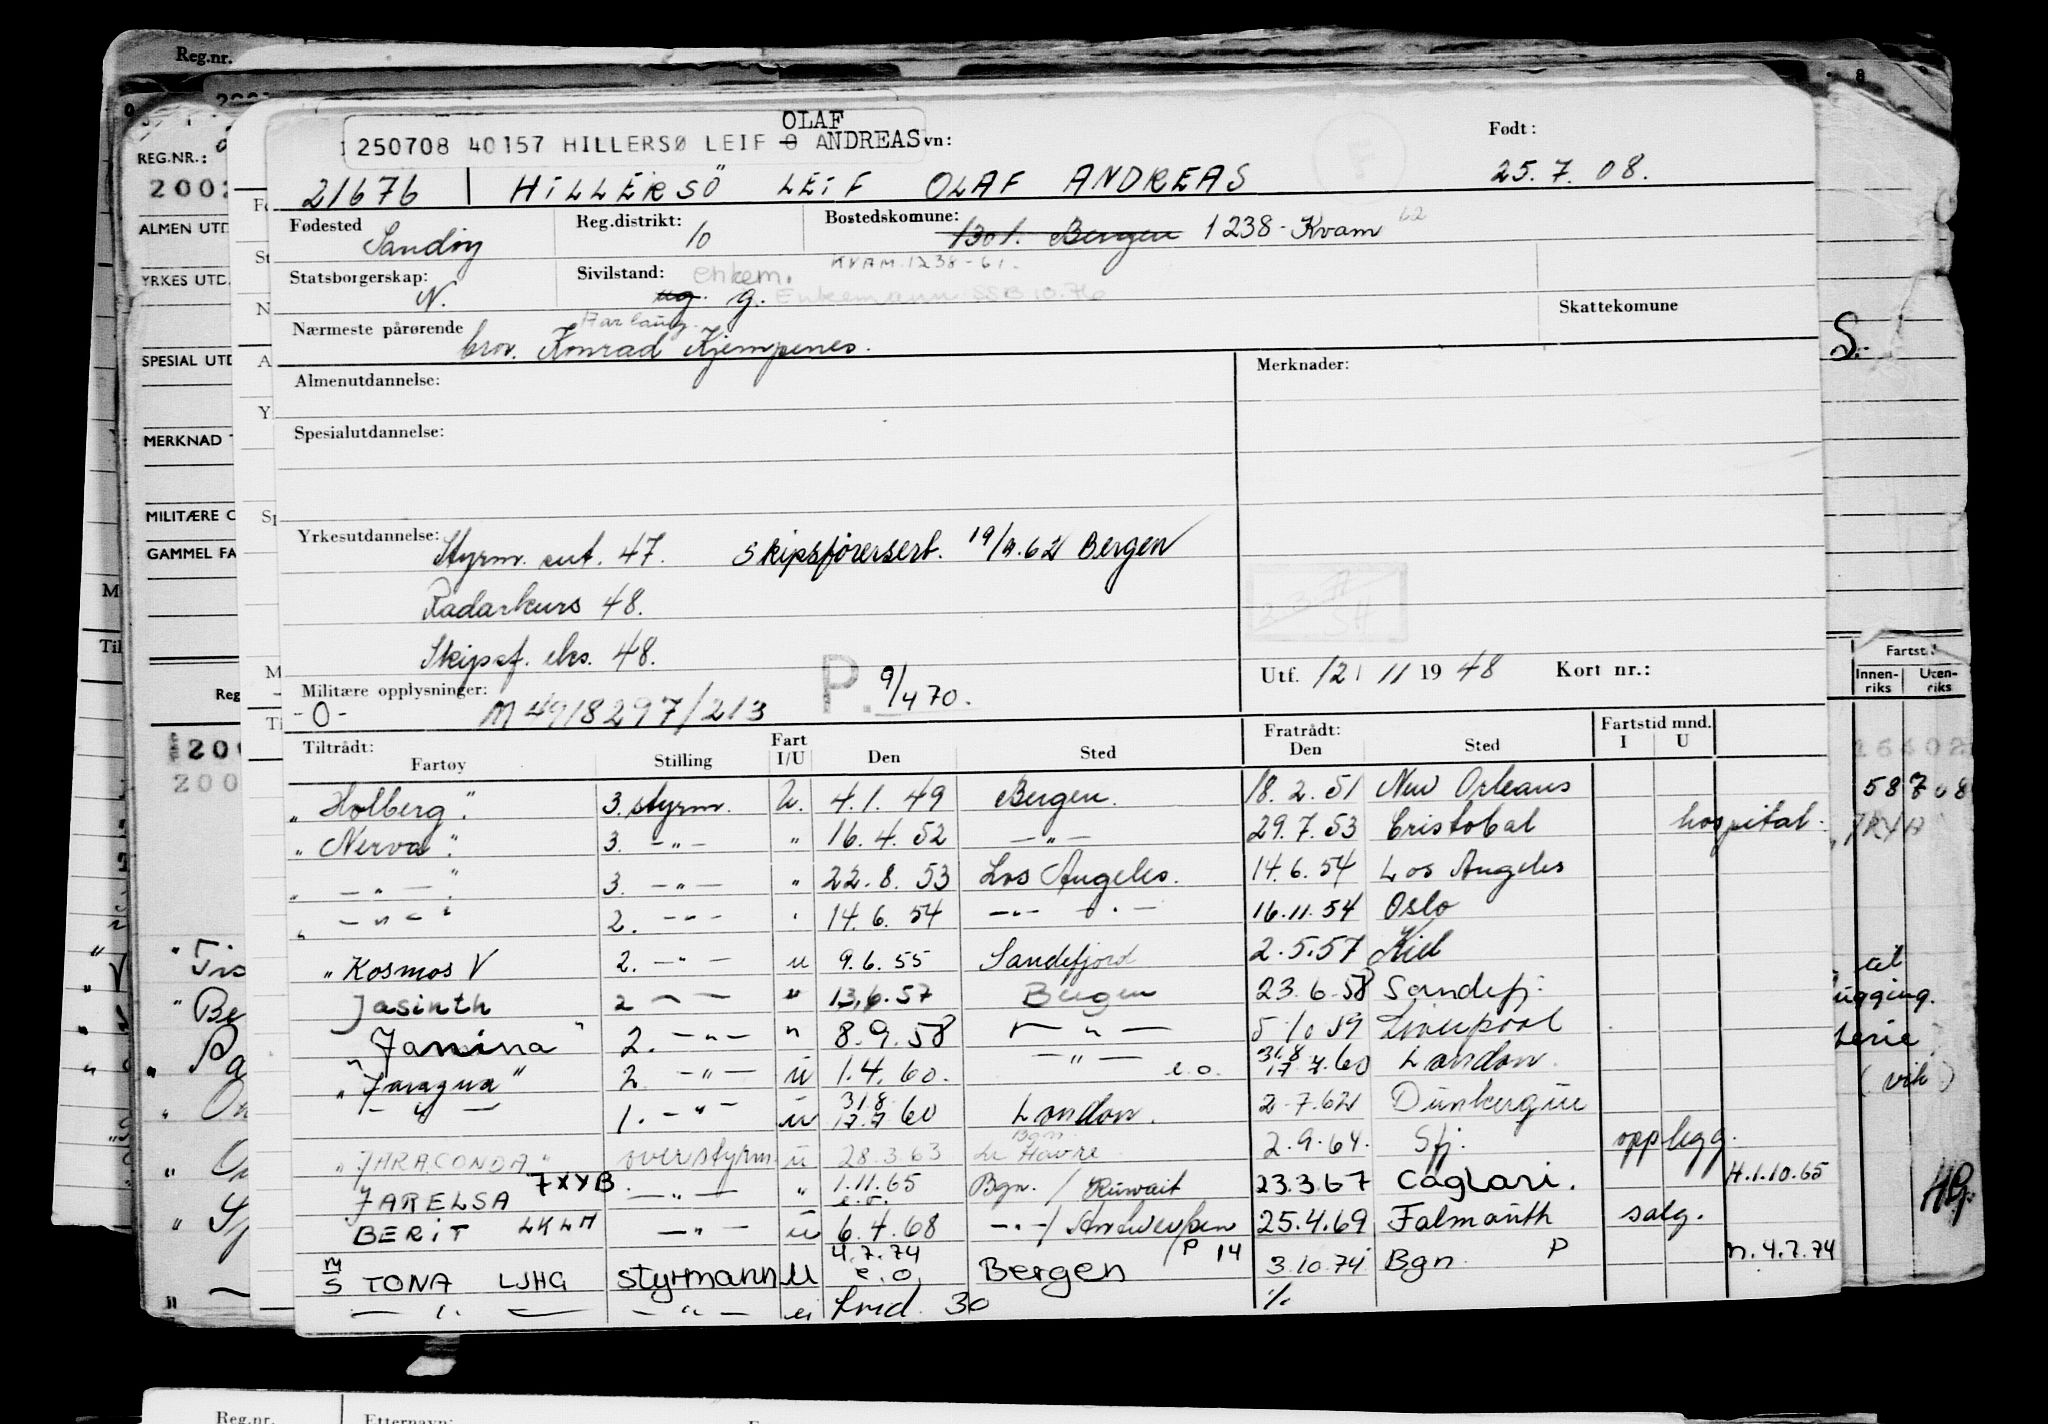 Reg.nr.
REG.NR.:
ALMEN UTD
YRKES UTD.
SPESIAL UTD
MERKNAD
MILITÆRE O
GAMMEL FA
OLAF
250708 40157 HILLERSØ LEIF O ANDREAS vn:
Født:
21676 HILLERSÖ LEIF OLAF ANDREAS 25.7.08.
Fødested Reg.distrikt: Bostedskomune:
Sandöy 10 1301. Bergen 1238-Kvam 62
Statsborgerskap: Sivilstand: enkem. KVAM.1238-61.
N. ug. g. Enkemann SSB 10.76
Skattekomune
Nærmeste pårørende
bror. Konrad Kjempenes.
Almenutdannelse: Merknader:
Spesialutdannelse:
Yrkesutdannelse:
Styrm. sert. 47. Skipsførersert. 19/9.62 Bergen
Radarkurs 48.
Skipsf. eks. 48.
Utf. 12/11 1948 Kort nr.:
Militære opplysninger: P. 9/4 70.
-O- M 4918297/213
Tiltrådt: Fartøy Stilling Fart I/U Den Sted Fratrådt: Den Sted Fartstid mnd. I U
"Holberg". 3. styrm. U. 4.1.49 Bergen. 18.2.51 New Orleans
"Nerva". 3. -"- " 16.4.52 -"- 29.7.53 Cristobal hospital.
" -"- " 3. -"- " 22.8.53 Los Angeles. 14.6.54 Los Angeles
" -"- " 2. -"- " 14.6.54 -"- -"- 16.11.54 Oslo
"Kosmos V 2. -"- u 9.6.55 Sandefjord 2.5.57 Kiel
Jasinth 2 -"- " 13.6.57 Bergen 23.6.58 Sandefj.
Janina" 2. -"- " 8.9.58 -"- 5.10.59 Liverpool
"Jaragua" 2. -"- u 1.4.60. -"- e.o. 31.8 17.7.60 London.
-"- 1. -"- u 31.8 17.7 60 London. 2.7.62 Dunkerque
"JARACONDA" overstyrm. u 28.3.63 Bgn. Le Havre 2.9.64. Sfj. opplegg.
JARELSA JXYB -"- " 1.11.65 e.o. Bgn. / Kuwait 23.3.67 Cagliari. H.1.10.65
BERIT LKLH -"- u 6.4.68 -"-/ Antwerpen 25.4.69 Falmouth salg.
M/S TONA LJHG styrmann U 4.7.74 e.o. Bergen P 14 3.10.74 Bgn. P n.4.7.74
-"- -"- ei Lnd. 30 %
S.
Fartst
Innen-riks Uten-riks
HBj.
Reg.nr. Etternavn: